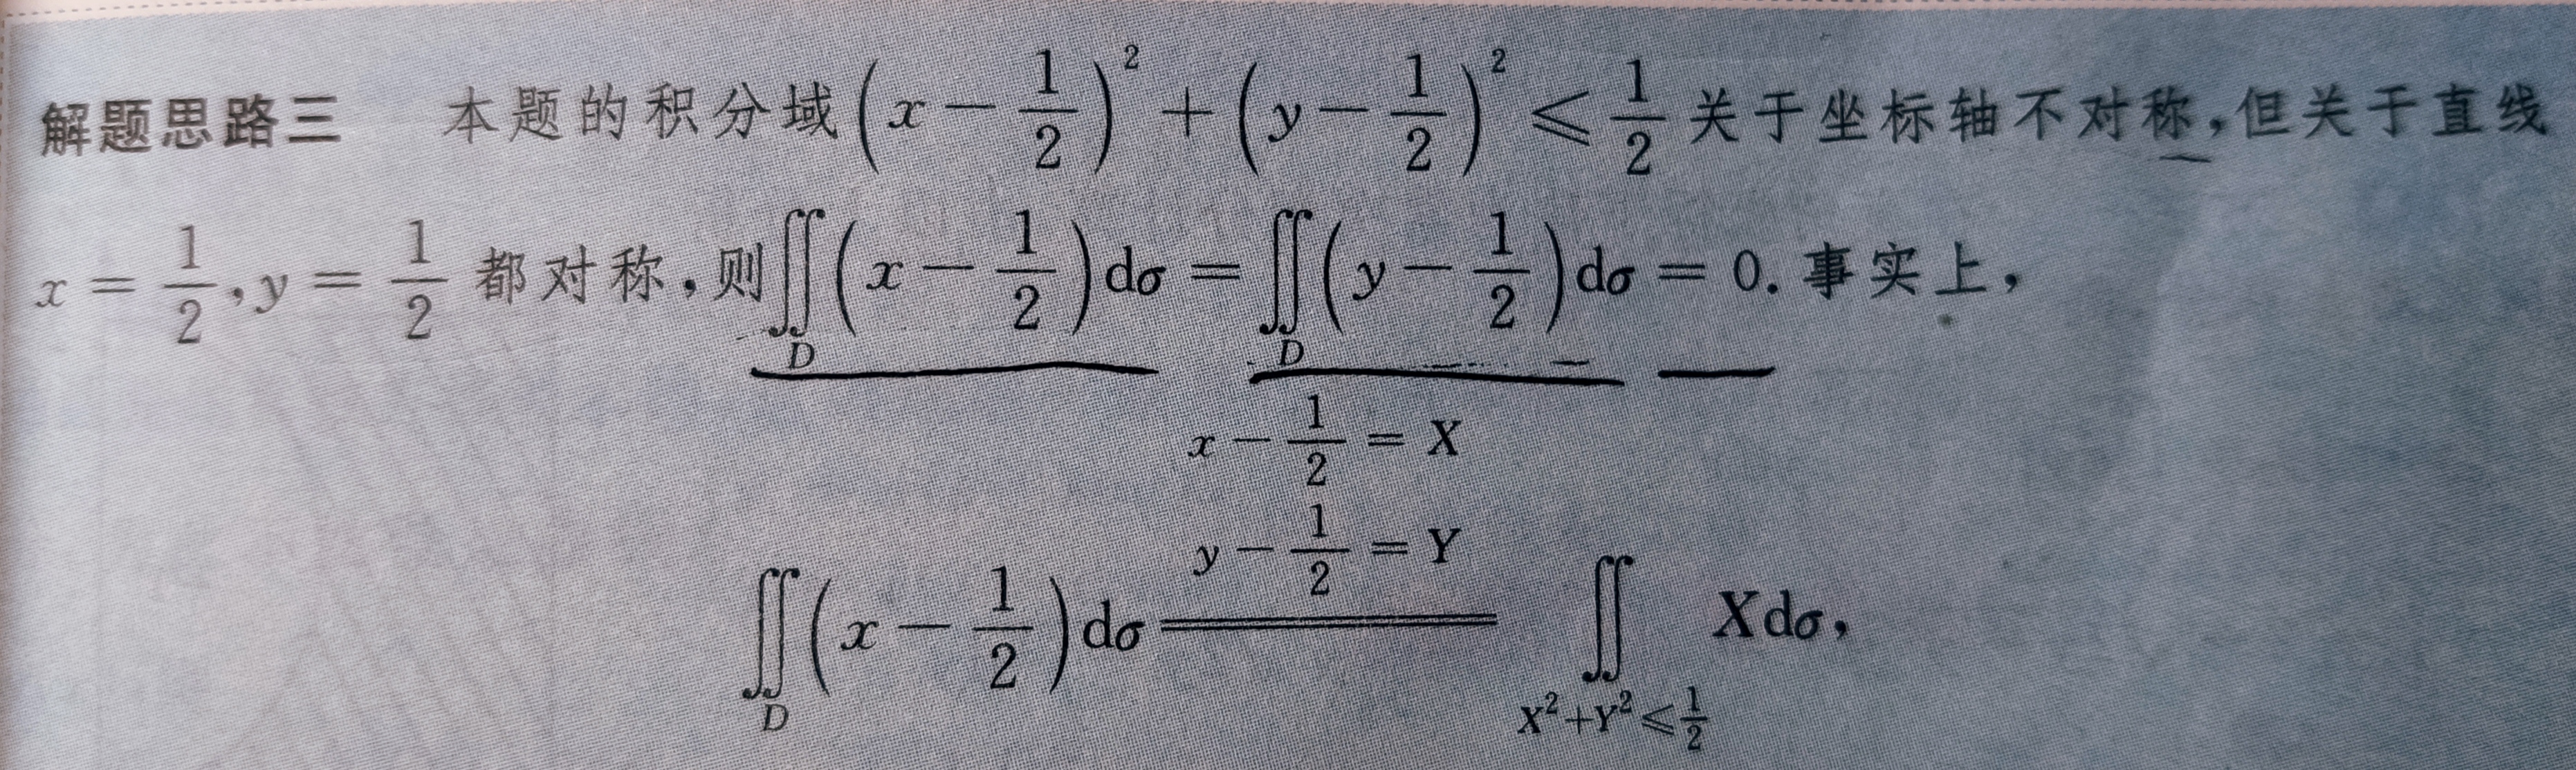 解题思路三 本题的积分域(x − 1/2)² + (y − 1/2)² ⩽ 1/2 关于坐标轴不对称,但关于直线
x = 1/2, y = 1/2 都对称,则∬_D (x − 1/2)dσ = ∬_D (y − 1/2)dσ = 0. 事实上,
x − 1/2 = X
y − 1/2 = Y
∬_D (x − 1/2)dσ ═══ ∬_{X²+Y²⩽1/2} Xdσ,